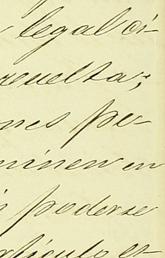 legal ó-
revuelta;
nes pe-
minen en
poderse
artículo et